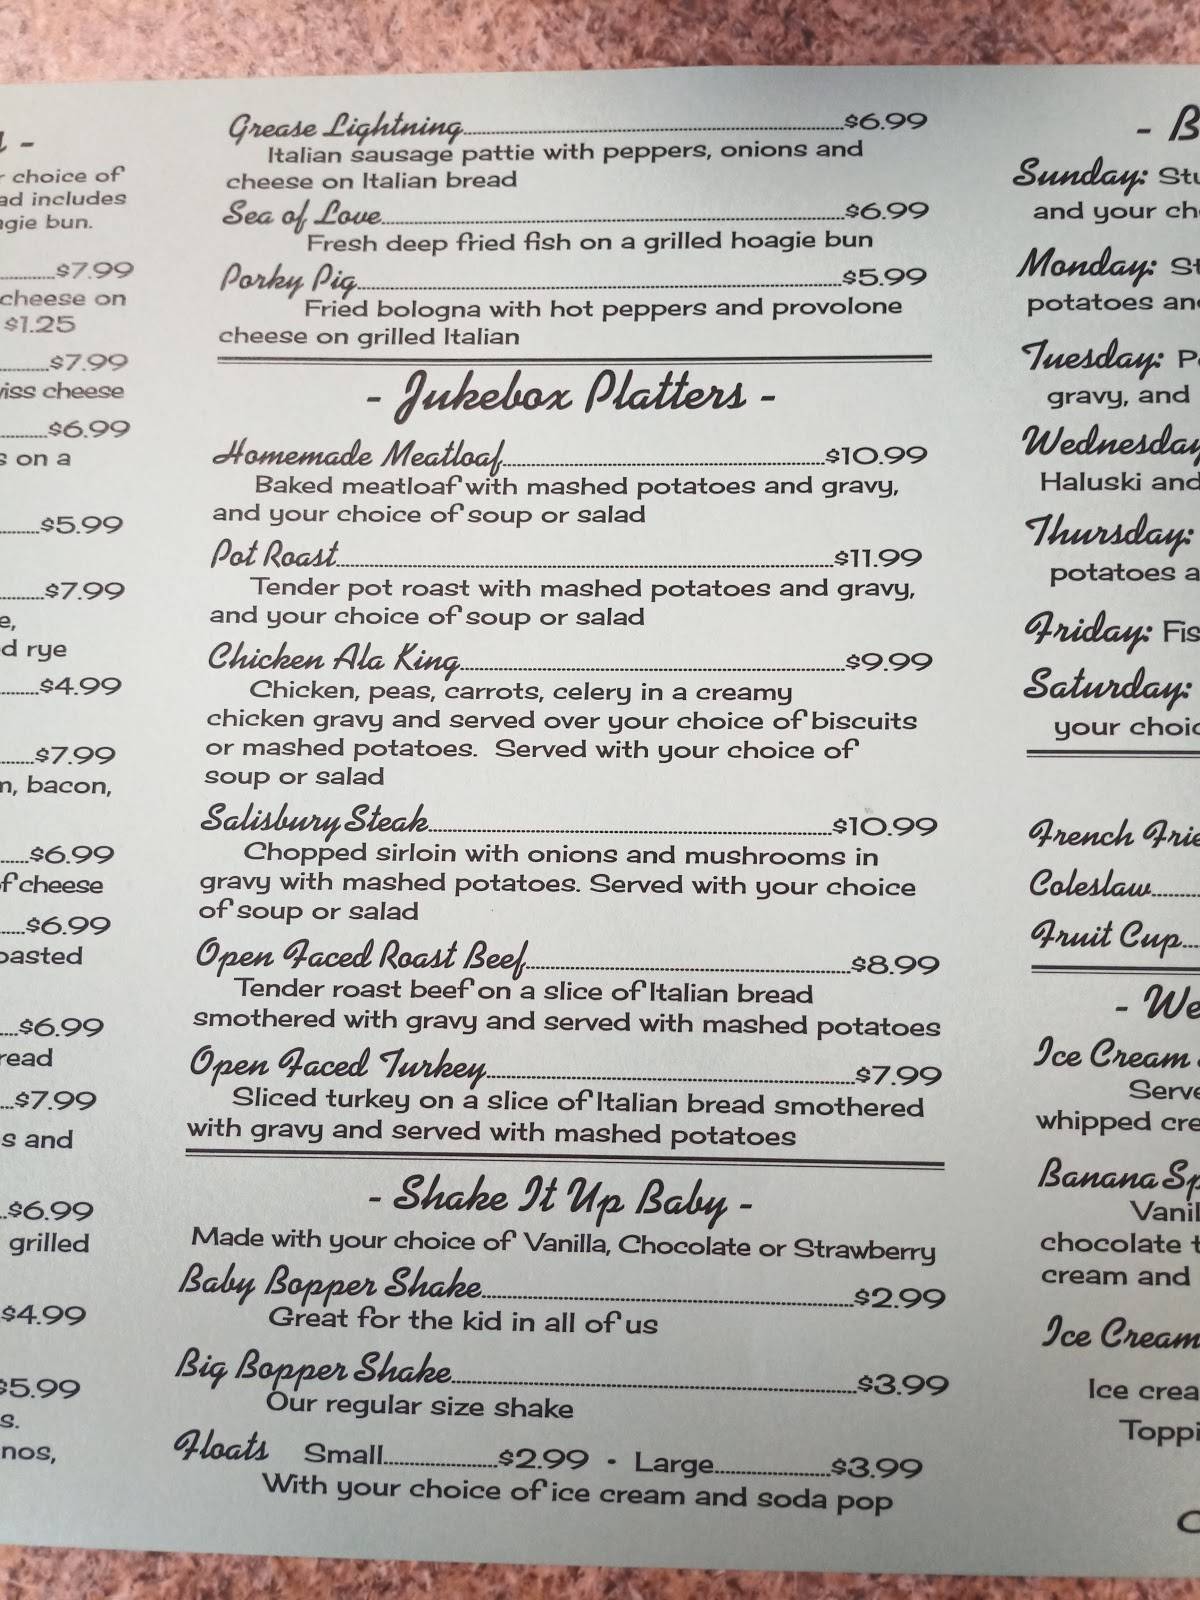 - 
choice of
includes
bun.
$7.99
cheese on
$1.25
$7.99
cheese
$6.99
on a
$5.99
$7.99
rye
$4.99
$7.99
bacon,
$6.99
of cheese
$6.99
$6.99
$7.99
and
$6.99
grilled
$4.99
$5.99
Grease Lightning $6.99
Italian sausage pattie with peppers, onions and
cheese on Italian bread
Sea of Love $6.99
Fresh deep fried fish on a grilled hoagie bun
Porky Pig $5.99
Fried bologna with hot peppers and provolone
cheese on grilled Italian
- Jukebox Platters -
Homemade Meatloaf $10.99
Baked meatloaf with mashed potatoes and gravy,
and your choice of soup or salad
Pot Roast $11.99
Tender pot roast with mashed potatoes and gravy,
and your choice of soup or salad
Chicken Ala King $9.99
Chicken, peas, carrots, celery in a creamy
chicken gravy and served over your choice of biscuits
or mashed potatoes. Served with your choice of
soup or salad
Salisbury Steak $10.99
Chopped sirloin with onions and mushrooms in
gravy with mashed potatoes. Served with your choice
of soup or salad
Open Faced Roast Beef $8.99
Tender roast beef on a slice of Italian bread
smothered with gravy and served with mashed potatoes
Open Faced Turkey $7.99
Sliced turkey on a slice of Italian bread smothered
with gravy and served with mashed potatoes
- Shake It Up Baby -
Made with your choice of Vanilla, Chocolate or Strawberry
Baby Bopper Shake $2.99
Great for the kid in all of us
Big Bopper Shake $3.99
Our regular size shake
Floats Small $2.99 • Large $3.99
With your choice of ice cream and soda pop
Sunday:
and your
Monday:
potatoes
Tuesday:
gravy, and
Wednesday
Haluski and
Thursday:
potatoes
Friday:
Saturday:
your
French
Coleslaw
Fruit Cup
Ice Cream
whipped
Banana
chocolate
cream and
Ice Cream
Ice